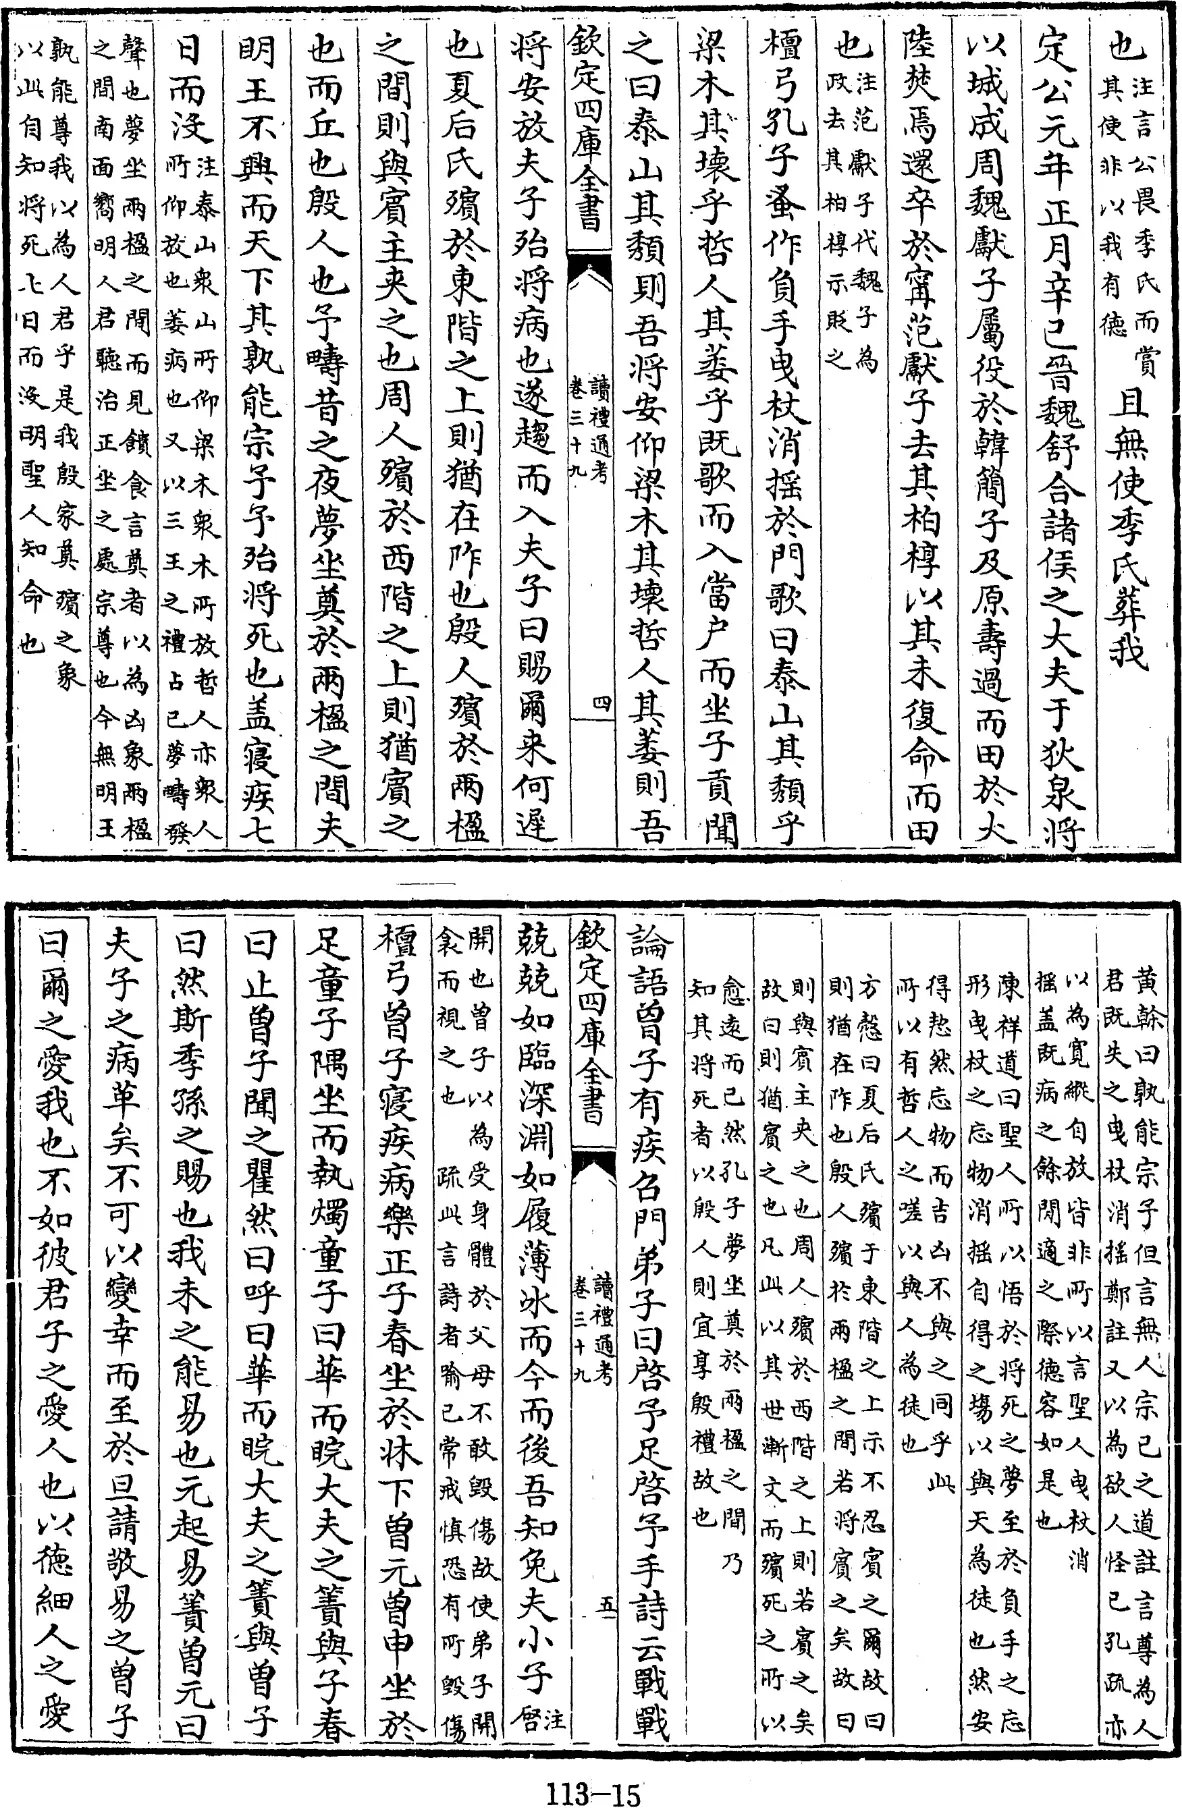 也注言公畏季氏而賞其使非以我有德且無使季氏葬我
定公元年正月辛巳晉魏舒合諸侯之大夫于狄泉將
以城成周魏獻子屬役於韓簡子及原壽過而田於大
陸焚焉還卒於甯范獻子去其柏椁以其未復命而田
也注范獻子代魏子為政去其柏椁示貶之
檀弓孔子蚤作負手曳杖消摇於門歌曰泰山其頹乎
梁木其壞乎哲人其萎乎既歌而入當户而坐子貢聞
之曰泰山其頹則吾將安仰梁木其壞哲人其萎則吾
欽定四庫全書 讀禮通考卷三十九 四
將安放夫子殆將病也遂趨而入夫子曰賜爾来何遲
也夏后氏殯於東階之上則猶在阼也殷人殯於兩楹
之間則與賓主夾之也周人殯於西階之上則猶賓之
也而丘也殷人也予疇昔之夜夢坐奠於兩楹之間夫
明王不興而天下其孰能宗予予殆將死也盖寝疾七
日而沒注泰山衆山所仰梁木衆木所放哲人亦衆人所仰放也萎病也又以三王之禮占已夢疇發
聲也夢坐兩楹之間而見饋食言奠者以為凶象兩楹之間南面嚮明人君聽治正坐之處宗尊也今無明王
孰能尊我以為人君乎是我殷家奠殯之象以此自知將死七日而沒明聖人知命也
黄榦曰孰能宗予但言無人宗己之道註言尊為人君既失之曳杖消摇鄭註又以為欲人怪已孔疏亦
以為寛縱自放皆非所以言聖人曳杖消摇盖既病之餘閒適之際德容如是也
陳祥道曰聖人所以悟於將死之夢至於負手之忘形曳杖之忘物消摇自得之場以與天為徒也然安
得恝然忘物而吉凶不與之同乎此所以有哲人之嗟以與人為徒也
方慤曰夏后氏殯于東階之上示不忍賓之爾故曰則猶在阼也殷人殯於兩楹之間若將賓之矣故曰
則與賓主夾之也周人殯於西階之上則若賓之矣故曰則猶賓之也凡此以其世漸文而殯死之所以
愈遠而已然孔子夢坐奠於兩楹之間乃知其將死者以殷人則宜享殷禮故也
論語曽子有疾召門弟子曰啓予足啓予手詩云戰戰
欽定四庫全書 讀禮通考卷三十九 五
兢兢如臨深淵如履薄冰而今而後吾知免夫小子注啓
開也曽子以為受身體於父母不敢毀傷故使弟子開衾而視之也 疏此言詩者喻己常戒慎恐有所毀傷
檀弓曽子寝疾病樂正子春坐於牀下曽元曽申坐於
足童子隅坐而執燭童子曰華而睆大夫之簀與子春
曰止曽子聞之瞿然曰呼曰華而睆大夫之簀與曽子
曰然斯季孫之賜也我未之能易也元起易簀曽元曰
夫子之病革矣不可以變幸而至於旦請敬易之曽子
曰爾之愛我也不如彼君子之愛人也以德細人之愛
113-15